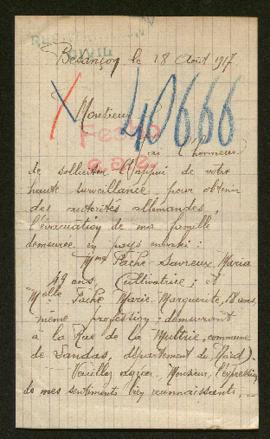 Besançon le 18 Août 1917
Monsieur
40666
l'honneur
de solliciter l'appui de votre
haute surveillance pour obtenir
des autorités allemandes,
l'évacuation de ma famille
demeurée en pays envahi :
Mme Pache Savreux, Maria
49 ans, Cultivatrice ; et
Melle Pache Marie Marguerite, 18 ans,
même profession ; demeurant
à la Rue de la commune
de Landas, département du Nord).
Veuillez agréer, Monsieur, l'expression
de mes sentiments reconnaissants,